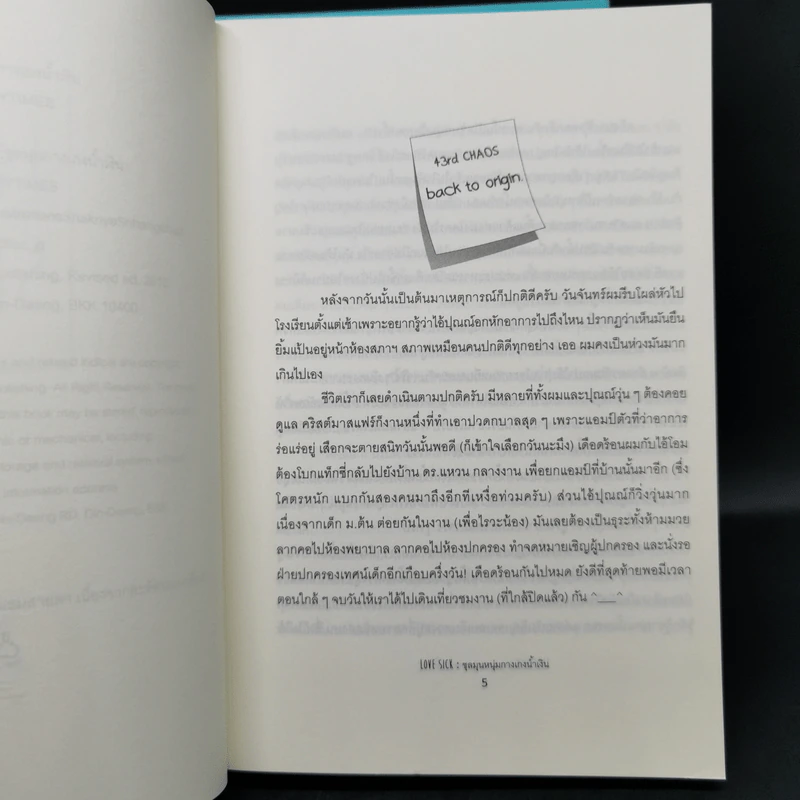 43rd CHAOS
back to origin.
หลังจากวันนั้นเป็นต้นมาเหตุการณ์ก็ปกติดีครับ วันจันทร์ผมรีบโผล่หัวไป
โรงเรียนตั้งแต่เช้าเพราะอยากรู้ว่าไอ้ปุณณ์อกหักอาการไปถึงไหน ปรากฏว่าเห็นมันยืน
ยิ้มแป้นอยู่หน้าห้องสภาฯ สภาพเหมือนคนปกติดีทุกอย่าง เออ ผมคงเป็นห่วงมันมาก
เกินไปเอง
ชีวิตเราก็เลยดำเนินตามปกติครับ มีหลายที่ทั้งผมและปุณณ์วุ่น ๆ ต้องคอย
ดูแล คริสต์มาสแฟร์ก็งานหนึ่งที่ทำเอาปวดกบาลสุด ๆ เพราะแอมป์ตัวที่ว่าอาการ
ร่อแร่อยู่ เลือกจะตายสนิทวันนั้นพอดี (ก็เข้าใจเลือกวันนะมึง) เดือดร้อนผมกับไอ้โอม
ต้องโบกแท็กซี่กลับไปยังบ้าน ดร.แหวน กลางงาน เพื่อยกแอมป์ที่บ้านนั้นมาอีก (ซึ่ง
โคตรหนัก แบกกันสองคนมาถึงอีกทีเหงื่อท่วมครับ) ส่วนไอ้ปุณณ์ก็วิ่งวุ่นมาก
เนื่องจากเด็ก ม.ต้น ต่อยกันในงาน (เพื่อไรวะน้อง) มันเลยต้องเป็นธุระทั้งห้ามมวย
ลากคอไปห้องพยาบาล ลากคอไปห้องปกครอง ทำจดหมายเชิญผู้ปกครอง และนั่งรอ
ฝ่ายปกครองเทศน์เด็กอีกเกือบครึ่งวัน! เดือดร้อนกันไปหมด ยังดีที่สุดท้ายพอมีเวลา
ตอนใกล้ ๆ จบวันให้เราได้ไปเดินเที่ยวชมงาน (ที่ใกล้ปิดแล้ว) กัน ^__^
LOVE SICK : ชุลมุนหนุ่มกางเกงน้ำเงิน
5